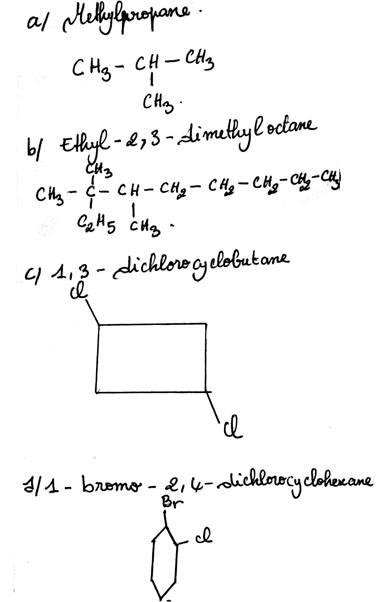 a/ Methylpropane.
CH3 - CH - CH3
CH3.
b/ Ethyl-2,3-dimethyloctane
CH3
CH3 - C - CH - CH2 - CH2 - CH2 - CH2 - CH3
C2H5 CH3.
c/ 1,3-dichlorocyclobutane
Cl
Cl
d/ 1-bromo-2,4-dichlorocyclohexane
Br
Cl